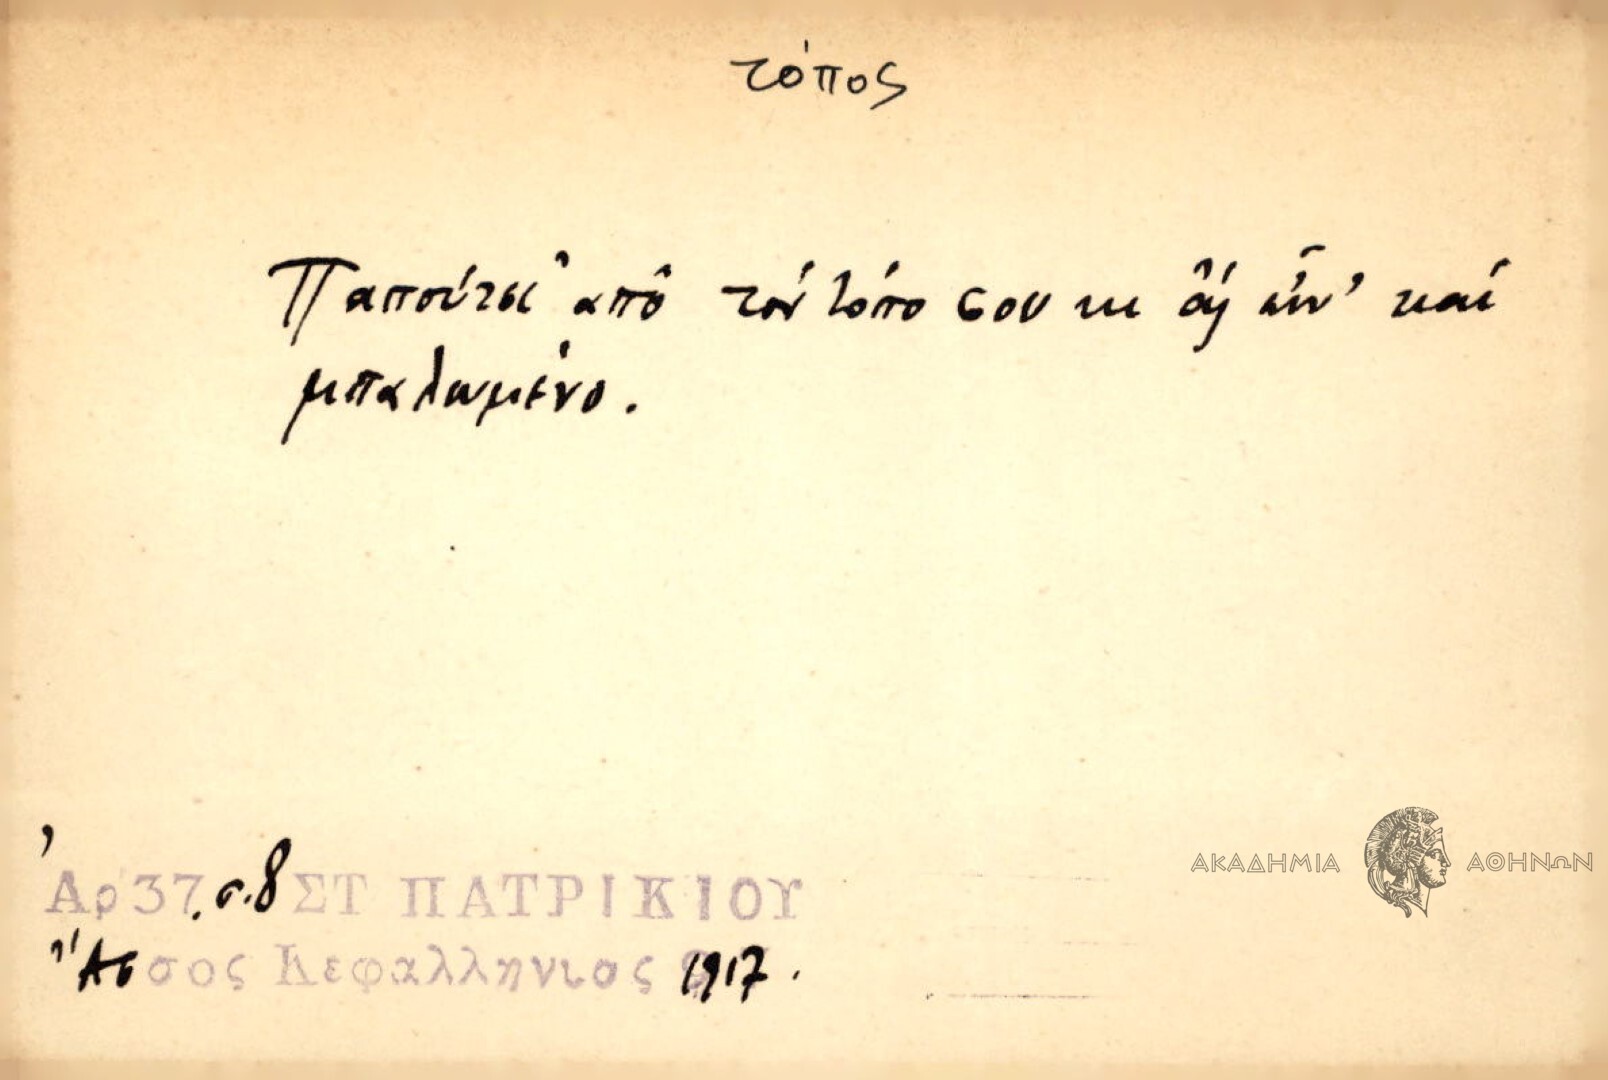 τόπος
Παπούτσι ἀπὸ τὸν τόπο σου κι ἄς εἶν' καὶ
μπαλωμένο.
Ἀρ 37. σ. 8 ΣΤ ΠΑΤΡΙΚΙΟΥ
Ἄσσος Κεφαλληνιας 1917.
ΑΚΑΔΗΜΙΑ ΑΘΗΝΩΝ